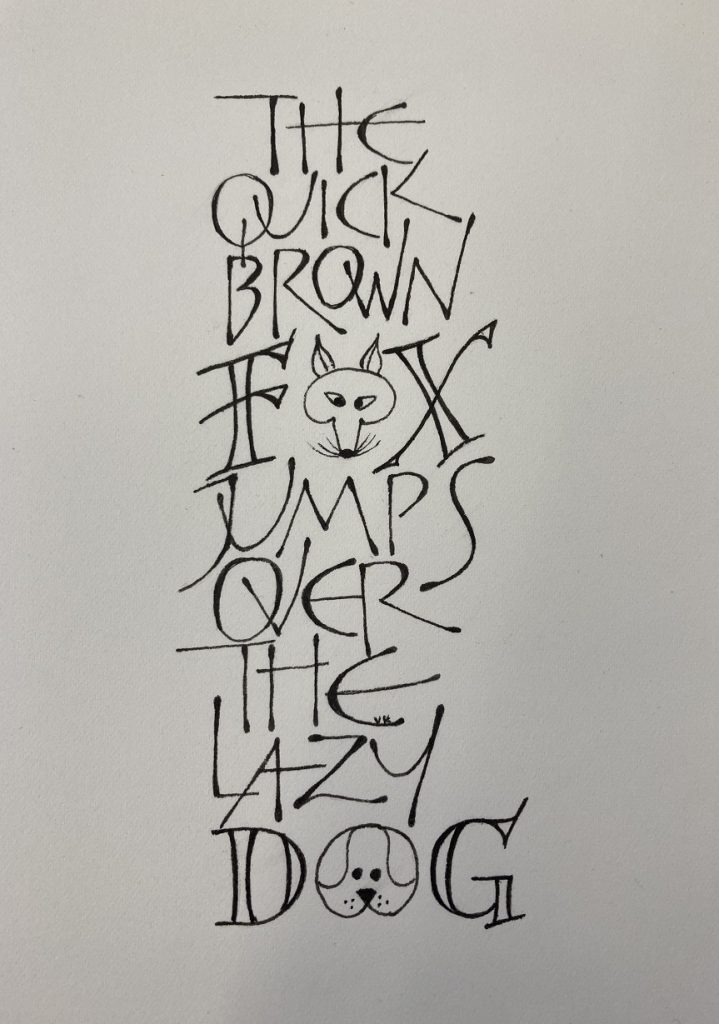 THE
QUICK
BROWN
FOX
JUMPS
OVER
THE
VK
LAZY
DOG